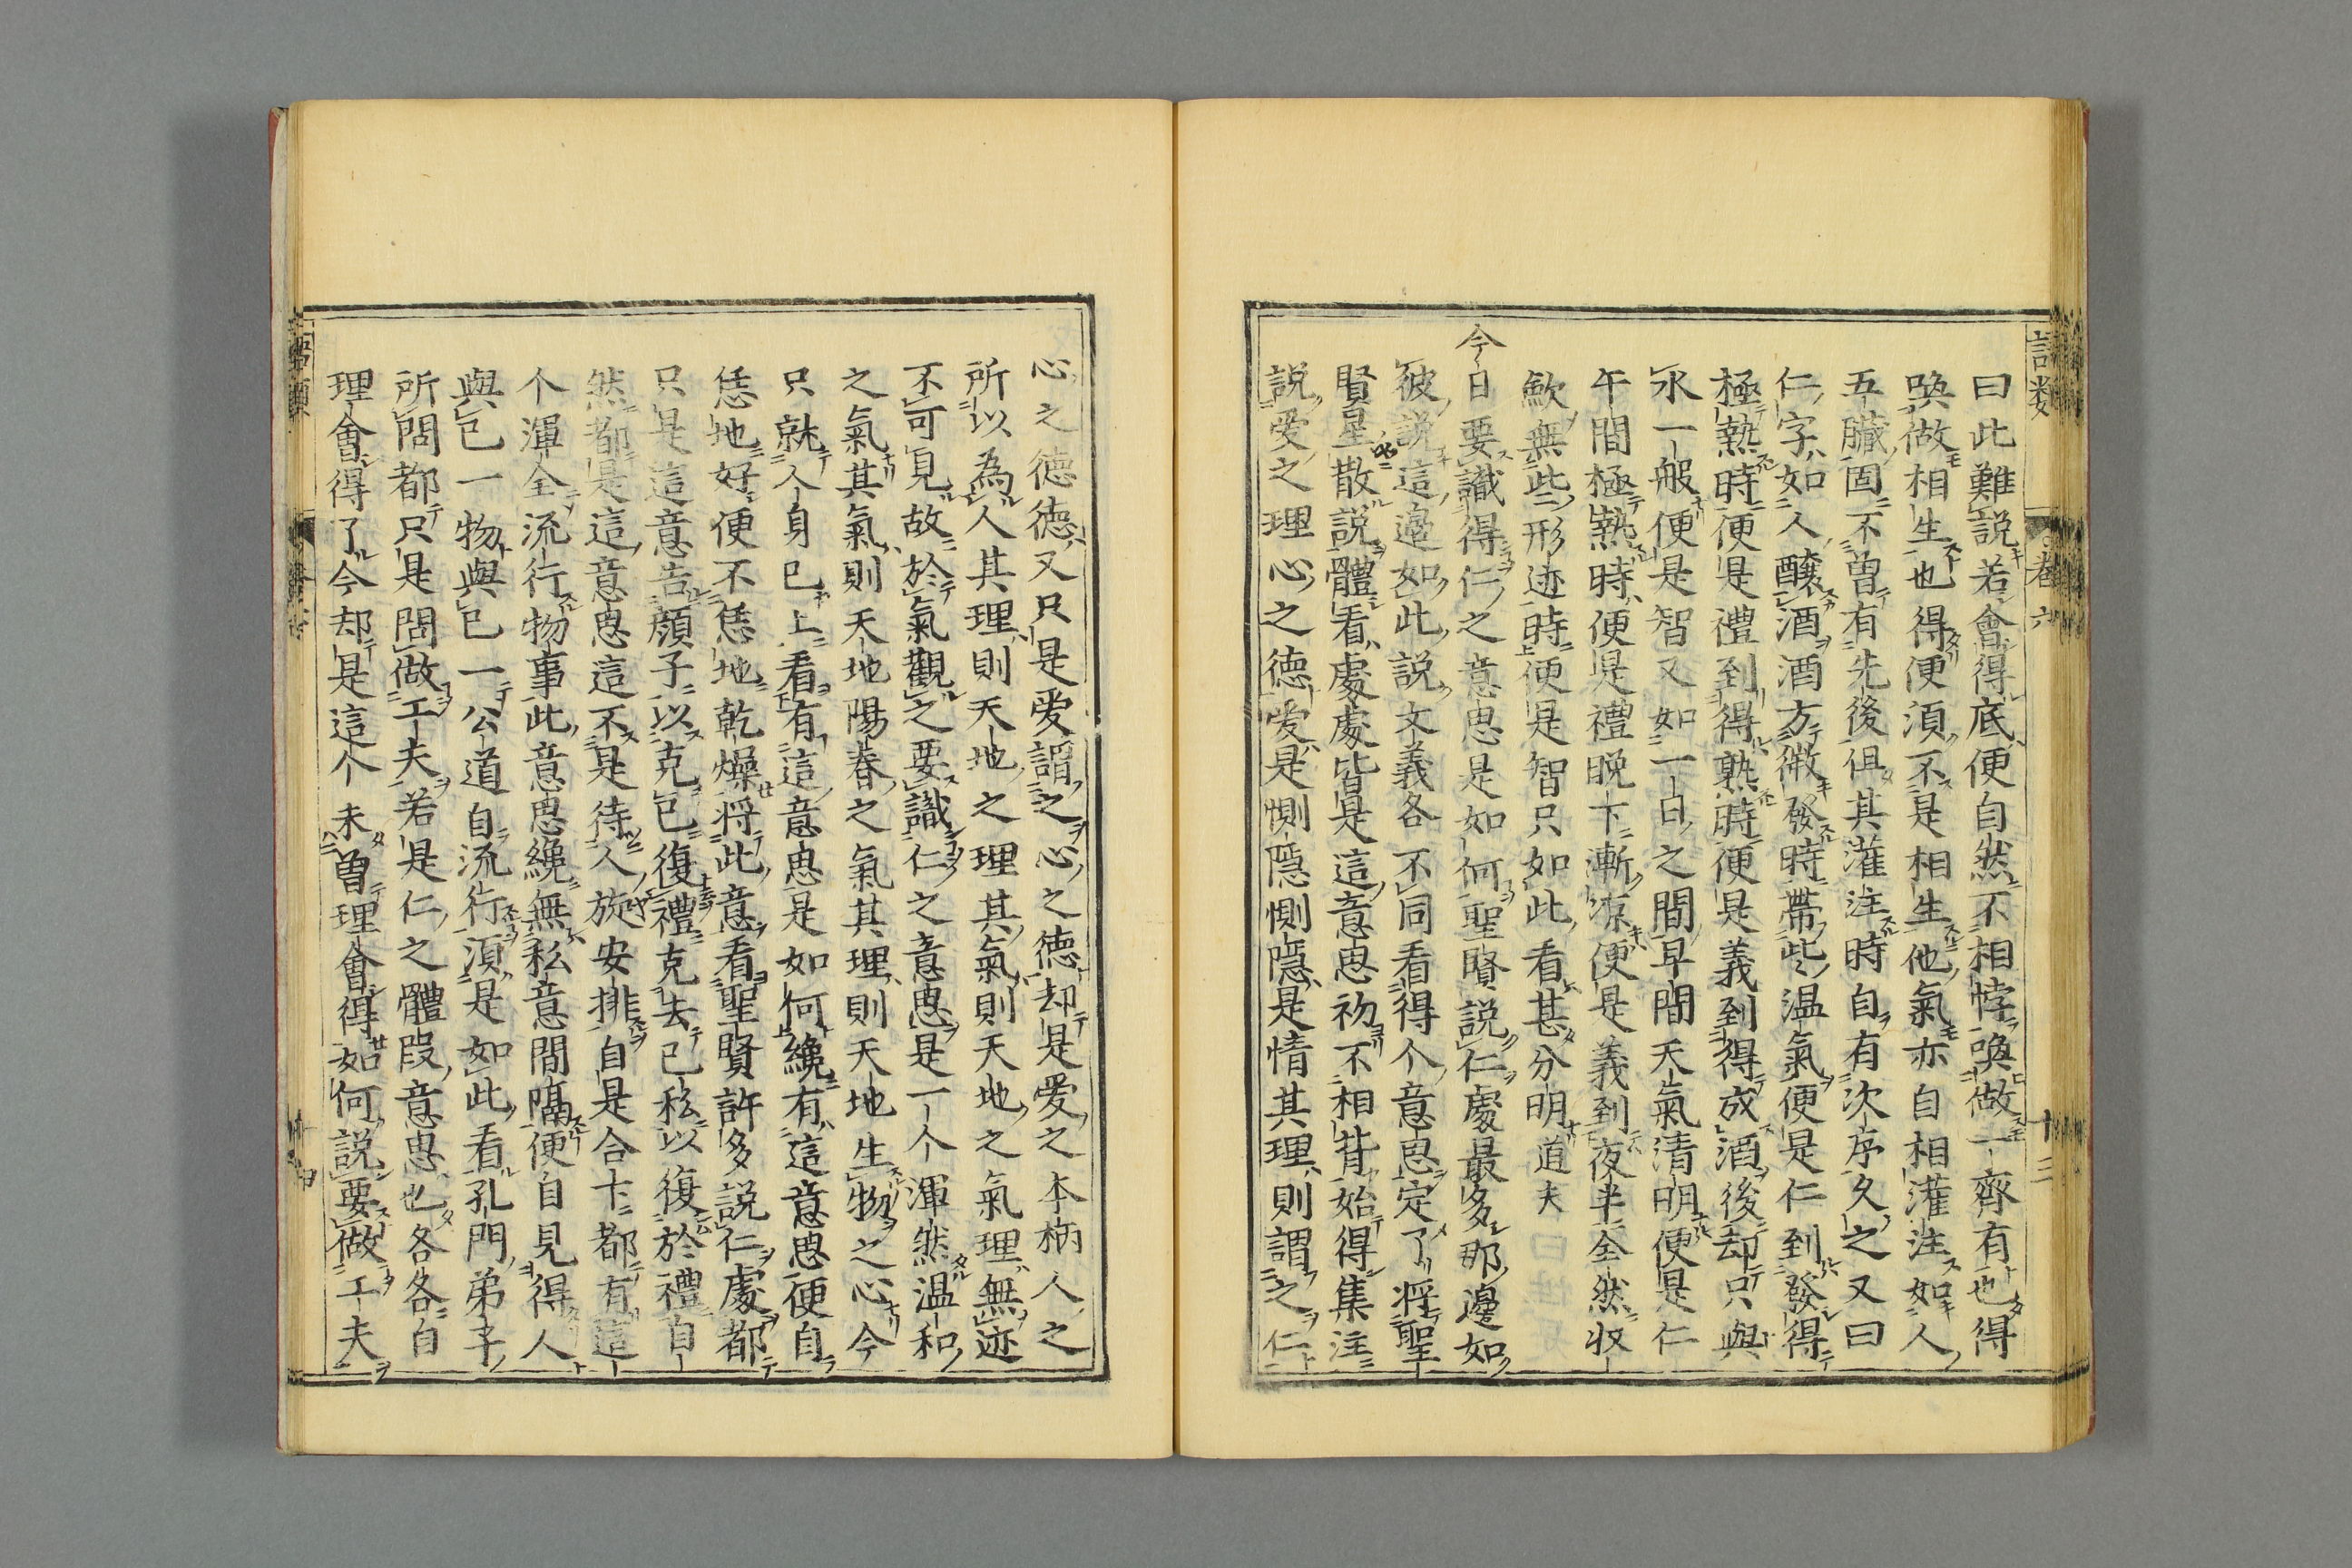 語類 卷六 十三
曰此難說若會得底便自然不相悖喚做一齊有也得
喚做相生也得便須不是相生他氣亦自相灌注如人
五臟固不曾有先後但其灌注時自有次序久之又曰
仁字如人釀酒酒方微發時帶些溫氣便是仁到發得
極熱時便是禮到得熟時便是義到得成酒後却只與
水一般便是智又如一日之間早間天氣清明便是仁
午間極熱時便是禮晚下漸凉便是義到夜半全然收
歛無些形迹時便是智只如此看甚分明道夫
今日要識得仁之意思是如何聖賢說仁處最多那邊如
彼說這邊如此說文義各不同看得个意思定了將聖
賢星散說體看處處皆是這意思初不相背始得集注
說愛之理心之德愛是惻隱惻隱是情其理則謂之仁
心之德德又只是愛謂之心之德却是愛之本柄人之
所以為人其理則天地之理其氣則天地之氣理無迹
不可見故於氣觀之要識仁之意思是一个渾然溫和
之氣其氣則天地陽春之氣其理則天地生物之心今
只就人身已上看有這意思是如何纔有這意思便自
恁地好便不恁地乾燥將此意看聖賢許多說仁處都
只是這意告顏子以克已復禮克去已私以復於禮自
然都是這意思這不是待人旋安排自是合下都有這
个渾全流行物事此意思纔無私意間隔便自見得人
與已一物與已一公道自流行須是如此看孔門弟子
所問都只是問做工夫若是仁之體段意思也各各自
理會得了今却是這个未曾理會得如何說要做工夫